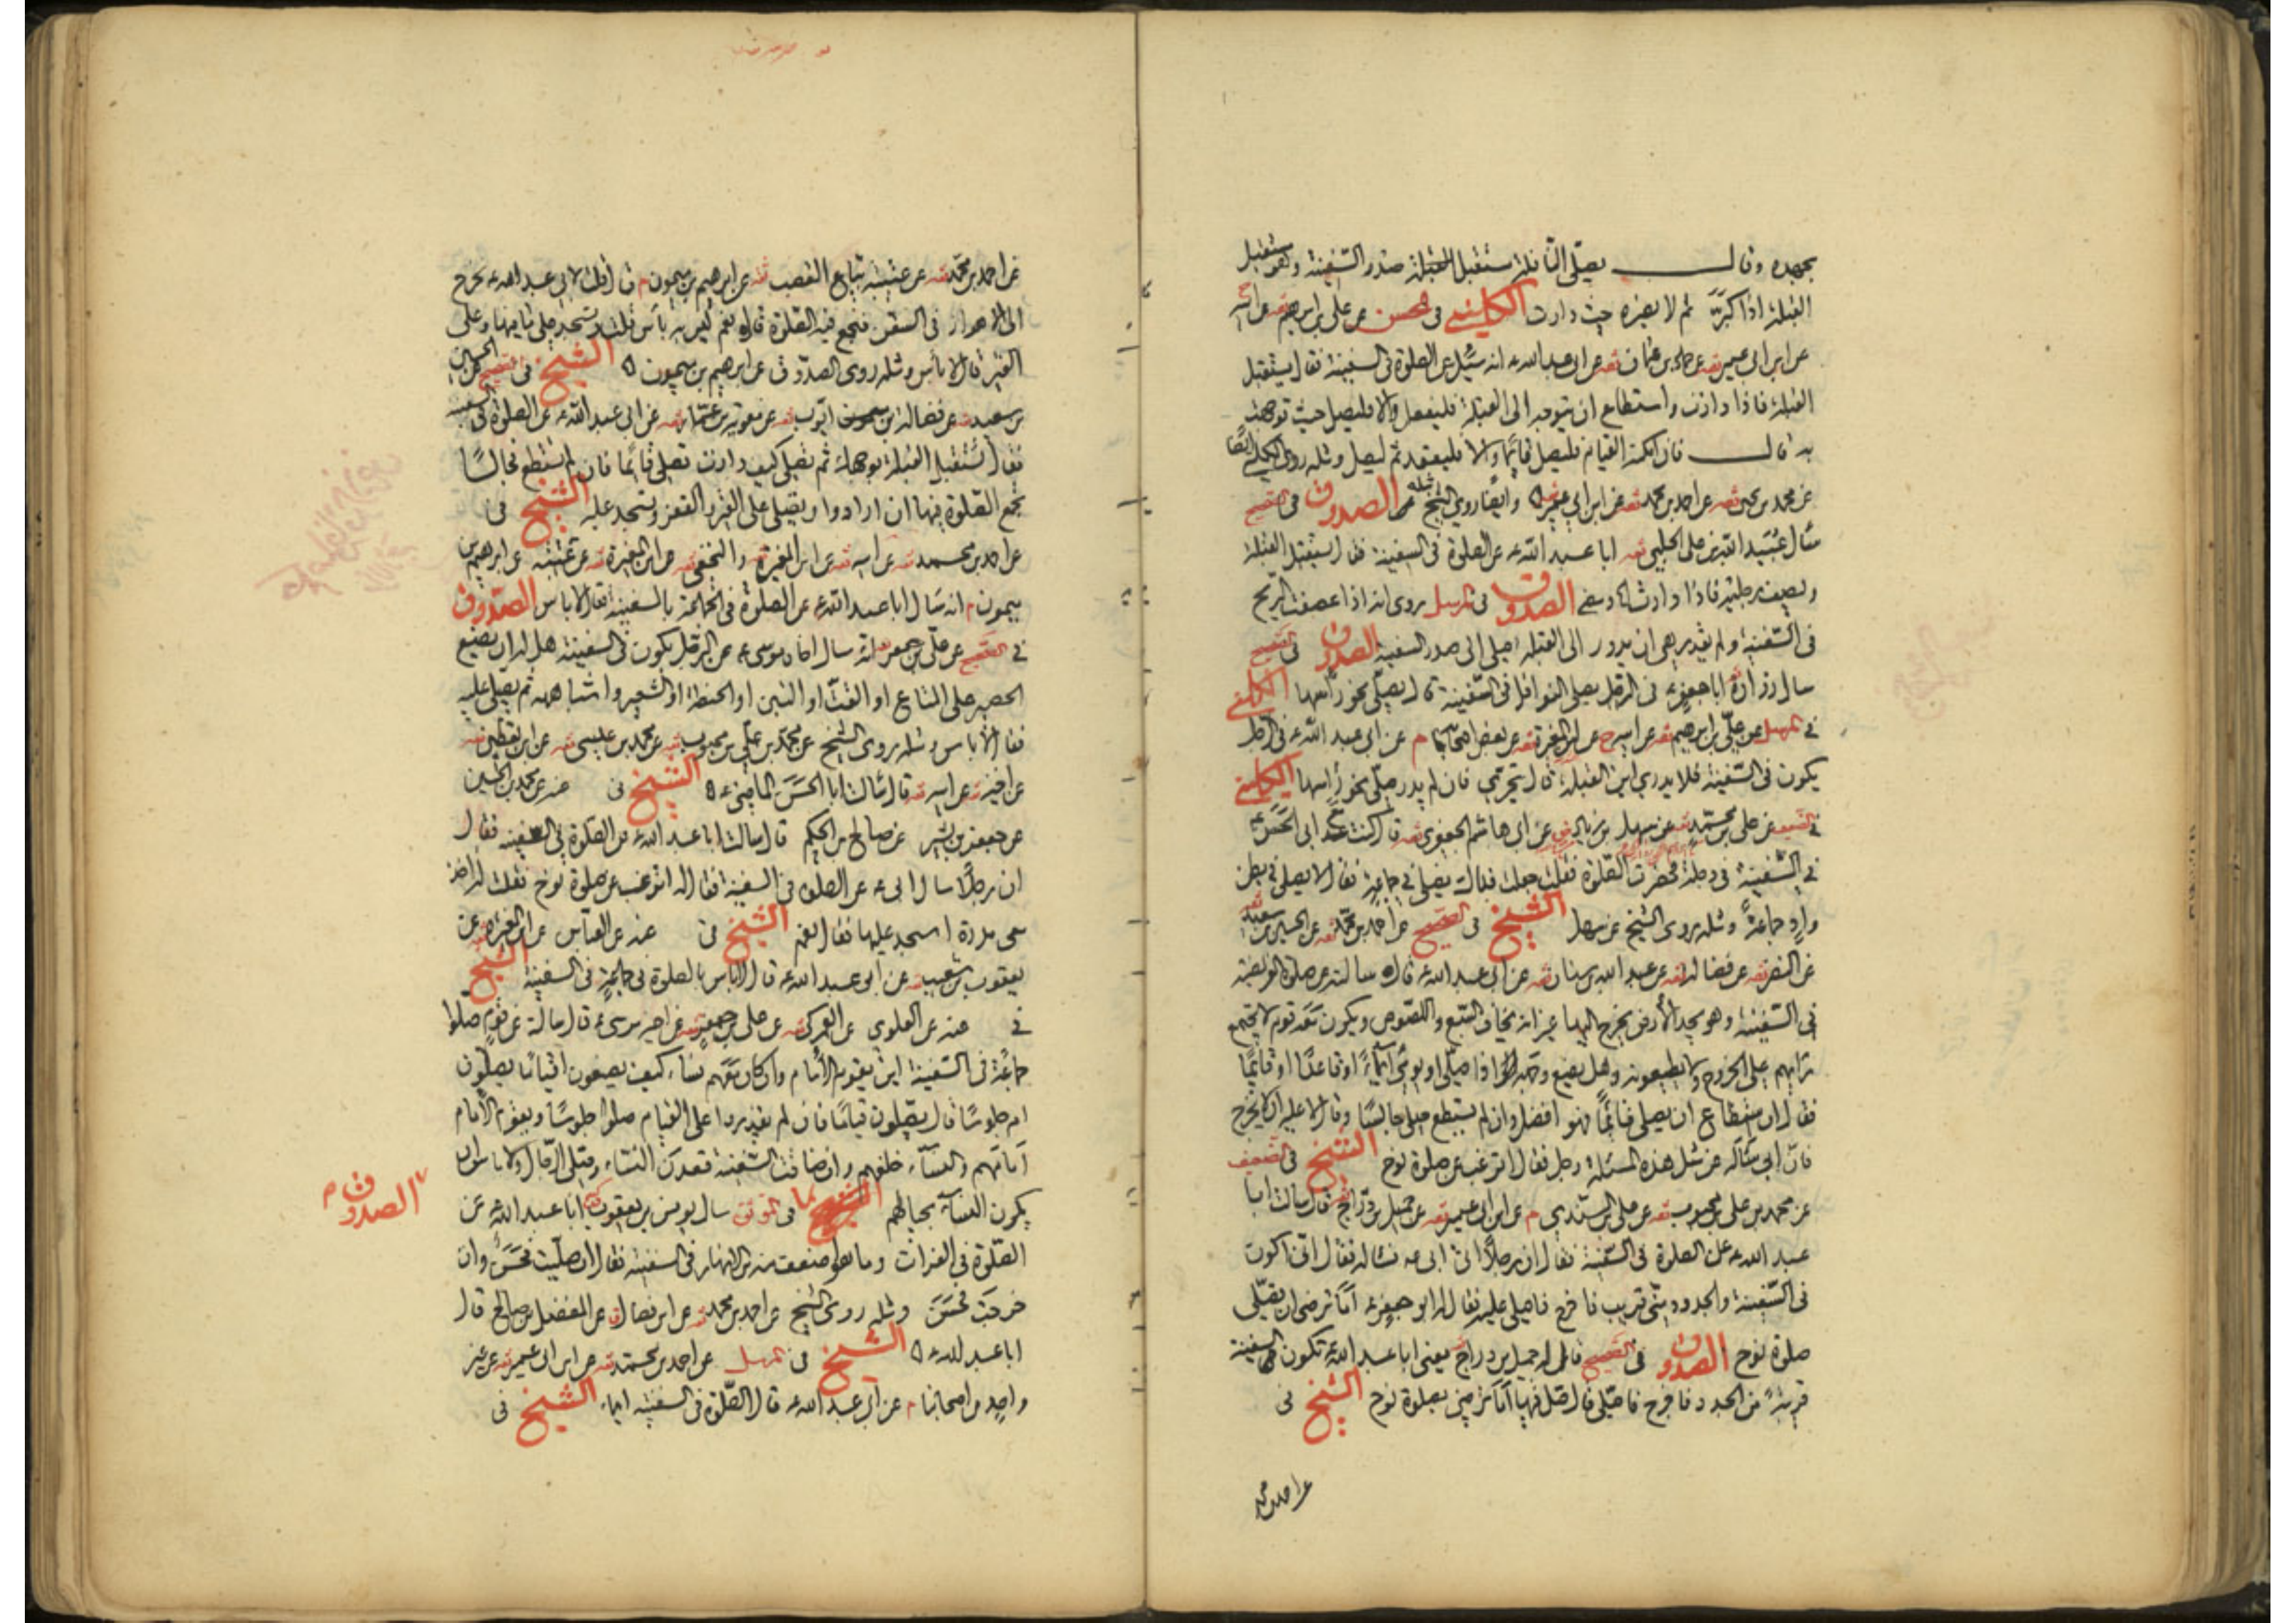 بجهده وقال يصلى النافلة مستقبل صدر السفينة وهو مستقبل
القبلة اذا كبر ثم لا يضره حيث دارت الكلينى فى الحسن عن على بن ابرهيم ثقه عن ابيه
عن ابن ابى عمير ثقه عن حماد بن عثمان ثقه عن ابى عبد الله ع انه سئل عن الصلوة فى السفينة فقال يستقبل
القبلة فاذا دارت واستطاع ان يتوجه الى القبلة فليفعل والا فليصل حيث توجهت
به قال فان امكنه القيام فليصل قائما والا فليقعد ثم ليصل ومثله روى الكلينى ايضا
عن محمد بن يحيى ثقه عن احمد بن محمد ثقه عن ابن ابى عمير وايضا روى الشيخ مثله الصدوق فى الصحيح
سال عبيد الله بن على الحلبى ثقه ابا عبد الله ع عن الصلوة فى السفينة فقال يستقبل القبلة
ويصف رجليه فاذا دارت الصدوق فى المرسل روى انه اذا عصفت الريح
فى السفينة ولم يقدر على ان يدور الى القبلة صلى الى صدر السفينة الصدوق فى الصحيح
سال زرارة ابا جعفر ع فى الرجل يصلى النوافل فى السفينة قال يصلى نحو راسها الكلينى
فى المرسل عن على بن ابرهيم ثقه عن ابيه ح عن ابن المغيرة ثقه عن بعض اصحابنا م عن ابى عبد الله ع فى الرجل
يكون فى السفينة فلا يدرى اين القبلة قال يتحرى فان لم يدر صلى نحو راسها الكلينى
فى الضعيف عن على بن محمد ثقه عن سهل بن زياد عن ابى هاشم الجعفرى ثقه قال كنت مع ابى الحسن ع
فى السفينة فى دجلة فحضرت الصلوة فقلت جعلت فداك نصلى فى جماعة فقال لا يصلى فى بطن
واد جماعة ومثله روى الشيخ عن سهل الشيخ فى الصحيح عن احمد بن محمد ثقه عن الحسين بن سعيد ثقه
عن النضر ثقه عن فضالة ثقه عن عبد الله بن سنان ثقه عن ابى عبد الله ع قال سالته عن صلوة الفريضة
فى السفينة وهو يجد الارض يخرج اليها غير انه يخاف السبع واللصوص ويكون معه قوم لا يجتمع
رايهم على الخروج ولا يطيعونه وهل يضع وجهه اذا صلى او يومى ايماء او قاعدا او قائما
فقال ان استطاع ان يصلى قائما فهو افضل وان لم يستطع صلى جالسا وقال لا عليه ان لا يخرج
فان ابى ساله عن مثل هذه المسئلة رجل فقال اترغب عن صلوة نوح الشيخ فى الضعيف
عن محمد بن على بن محبوب ثقه عن على بن السندى م عن ابن ابى عمير ثقه عن جميل بن دراج ثقه قال سالت ابا
عبد الله ع عن الصلوة فى السفينة فقال ان رجلا اتى ابى ع فساله فقال انى اكون
فى السفينة والجدد منى قريب فاخرج فاصلى عليه فقال له ابو جعفر ع اما ترضى ان تصلى
صلوة نوح الصدوق فى الصحيح قال له جميل بن دراج يعنى ابا عبد الله ع تكون السفينة
قريبة من الجدد فاخرج فاصلى قال صل فيها اما ترضى بصلوة نوح الشيخ فى
عن احمد بن محمد
عن احمد بن محمد ثقه عن عتيبة بياع القصب ثقه عن ابرهيم بن ميمون م قال قلت لابى عبد الله ع نخرج
الى الاهواز فى السفن فنجمع فيها الصلوة قال نعم ليس به بأس قلت ونسجد على ما فيها وعلى
القير قال لا باس ومثله روى الصدوق عن ابرهيم بن ميمون الشيخ فى الصحيح عن الحسين
بن سعيد ثقه عن فضالة بن ايوب ثقه عن معوية بن عمار ثقه عن ابى عبد الله ع عن الصلوة فى السفينة
فقال تستقبل القبلة بوجهك ثم تصلى كيف دارت تصلى قائما فان لم تستطع فجالسا
يجمع الصلوة فيها ان ارادوا ويصلى على القير والقفر ويسجد عليه الشيخ فى
عن احمد بن محمد ثقه عن ابيه ثقه عن ابن المغيرة والنخعى ثقه عن ابن المغيرة ثقه عن عتيبة عن ابرهيم بن
ميمون م انه سال ابا عبد الله ع عن الصلوة فى جماعة بالسفينة فقال لا باس الصدوق
فى الصحيح عن على بن جعفر ثقه انه سال اخاه موسى ع عن الرجل يكون فى السفينة هل له ان يضع
الحصير على المتاع او القت او التبن او الحنطة او الشعير واشباهه ثم يصلى عليه
فقال لا باس ومثله روى الشيخ عن محمد بن على بن محبوب ثقه عن محمد بن عيسى ثقه عن ابن يقطين ثقه
عن اخيه ثقه عن ابيه ثقه قال سالت ابا الحسن الماضى ع الشيخ فى عنه عن محمد بن الحسين
عن جعفر بن بشير عن صالح بن الحكم قال سالت ابا عبد الله ع عن الصلوة فى السفينة فقال
ان رجلا سال ابى ع عن الصلوة فى السفينة فقال له اترغب عن صلوة نوح فقلت له اخذ
معى مدرة اسجد عليها فقال نعم الشيخ فى عنه عن العباس عن ابن المغيرة ثقه عن
يعقوب بن شعيب ثقه عن ابى عبد الله ع قال لا باس بالصلوة فى جماعة فى السفينة الشيخ
فى عنه عن العلوى عن العمركى ثقه عن على بن جعفر ثقه عن اخيه موسى ع قال سالته عن قوم صلوا
جماعة فى السفينة اين يقوم الامام وان كان معهم نساء كيف يصنعون اقياما يصلون
ام جلوسا قال يصلون قياما فان لم يقدروا على القيام صلوا جلوسا ويقوم الامام
امامهم والنساء خلفهم وان ضاقت السفينة قعدن النساء وصلى الرجال ولا باس ان
يكون النساء بحيالهم فى الموثق سال يونس بن يعقوب ابا عبد الله ع عن
الصلوة فى الفرات وما هو اضعف منه من الانهار فى السفينة فقال ان صليت فحسن وان
خرجت فحسن ومثله روى الشيخ عن احمد بن محمد ثقه عن ابن فضال ق عن المفضل بن صالح قال
ابا عبد الله ع الشيخ فى المرسل عن احمد بن محمد ثقه عن ابن ابى عمير ثقه عن غير
واحد من اصحابنا م عن ابى عبد الله ع قال الصلوة فى السفينة ايماء الشيخ فى
الصدوق م